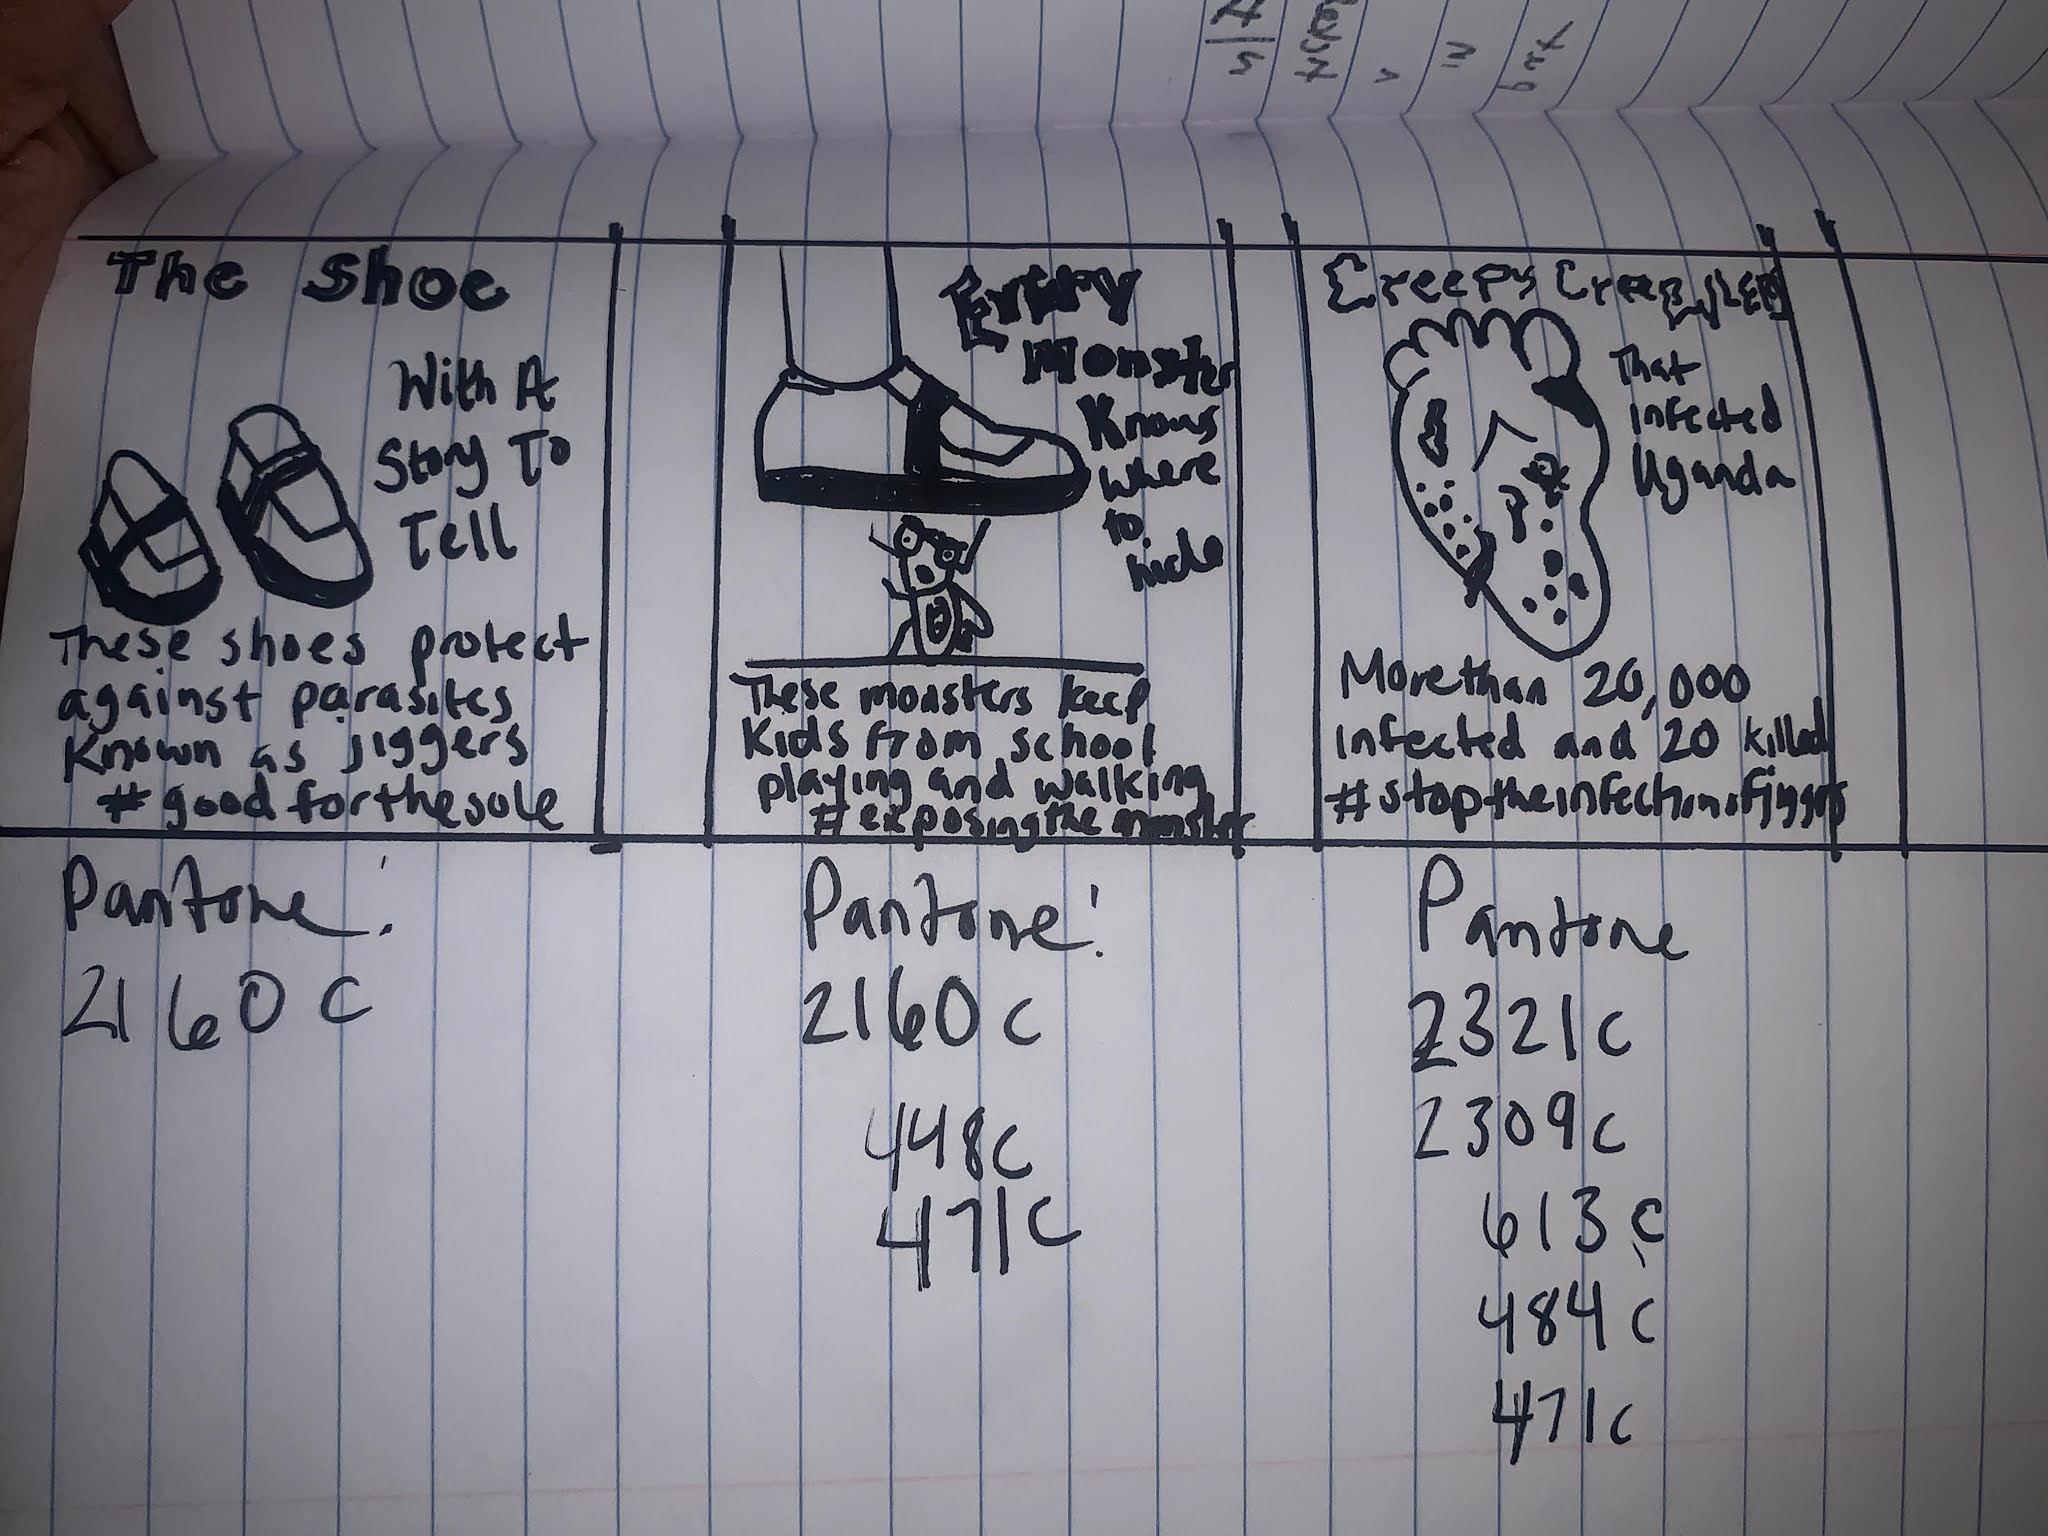 The Shoe
With A
Story To
Tell
These shoes protect
against parasites
Known as Jiggers
#goodforthesole
Every
Monster
Knows
where
to
hide
These monsters keep
Kids from school
playing and walking
#exposingthemonster
Creepy
That
infected
Uganda
More than 20,000
infected and 20 killed
Pantone:
2160 C
Pantone:
2160 C
448 C
471 C
Pantone
2321 C
2309 C
613 C
484 C
471 C